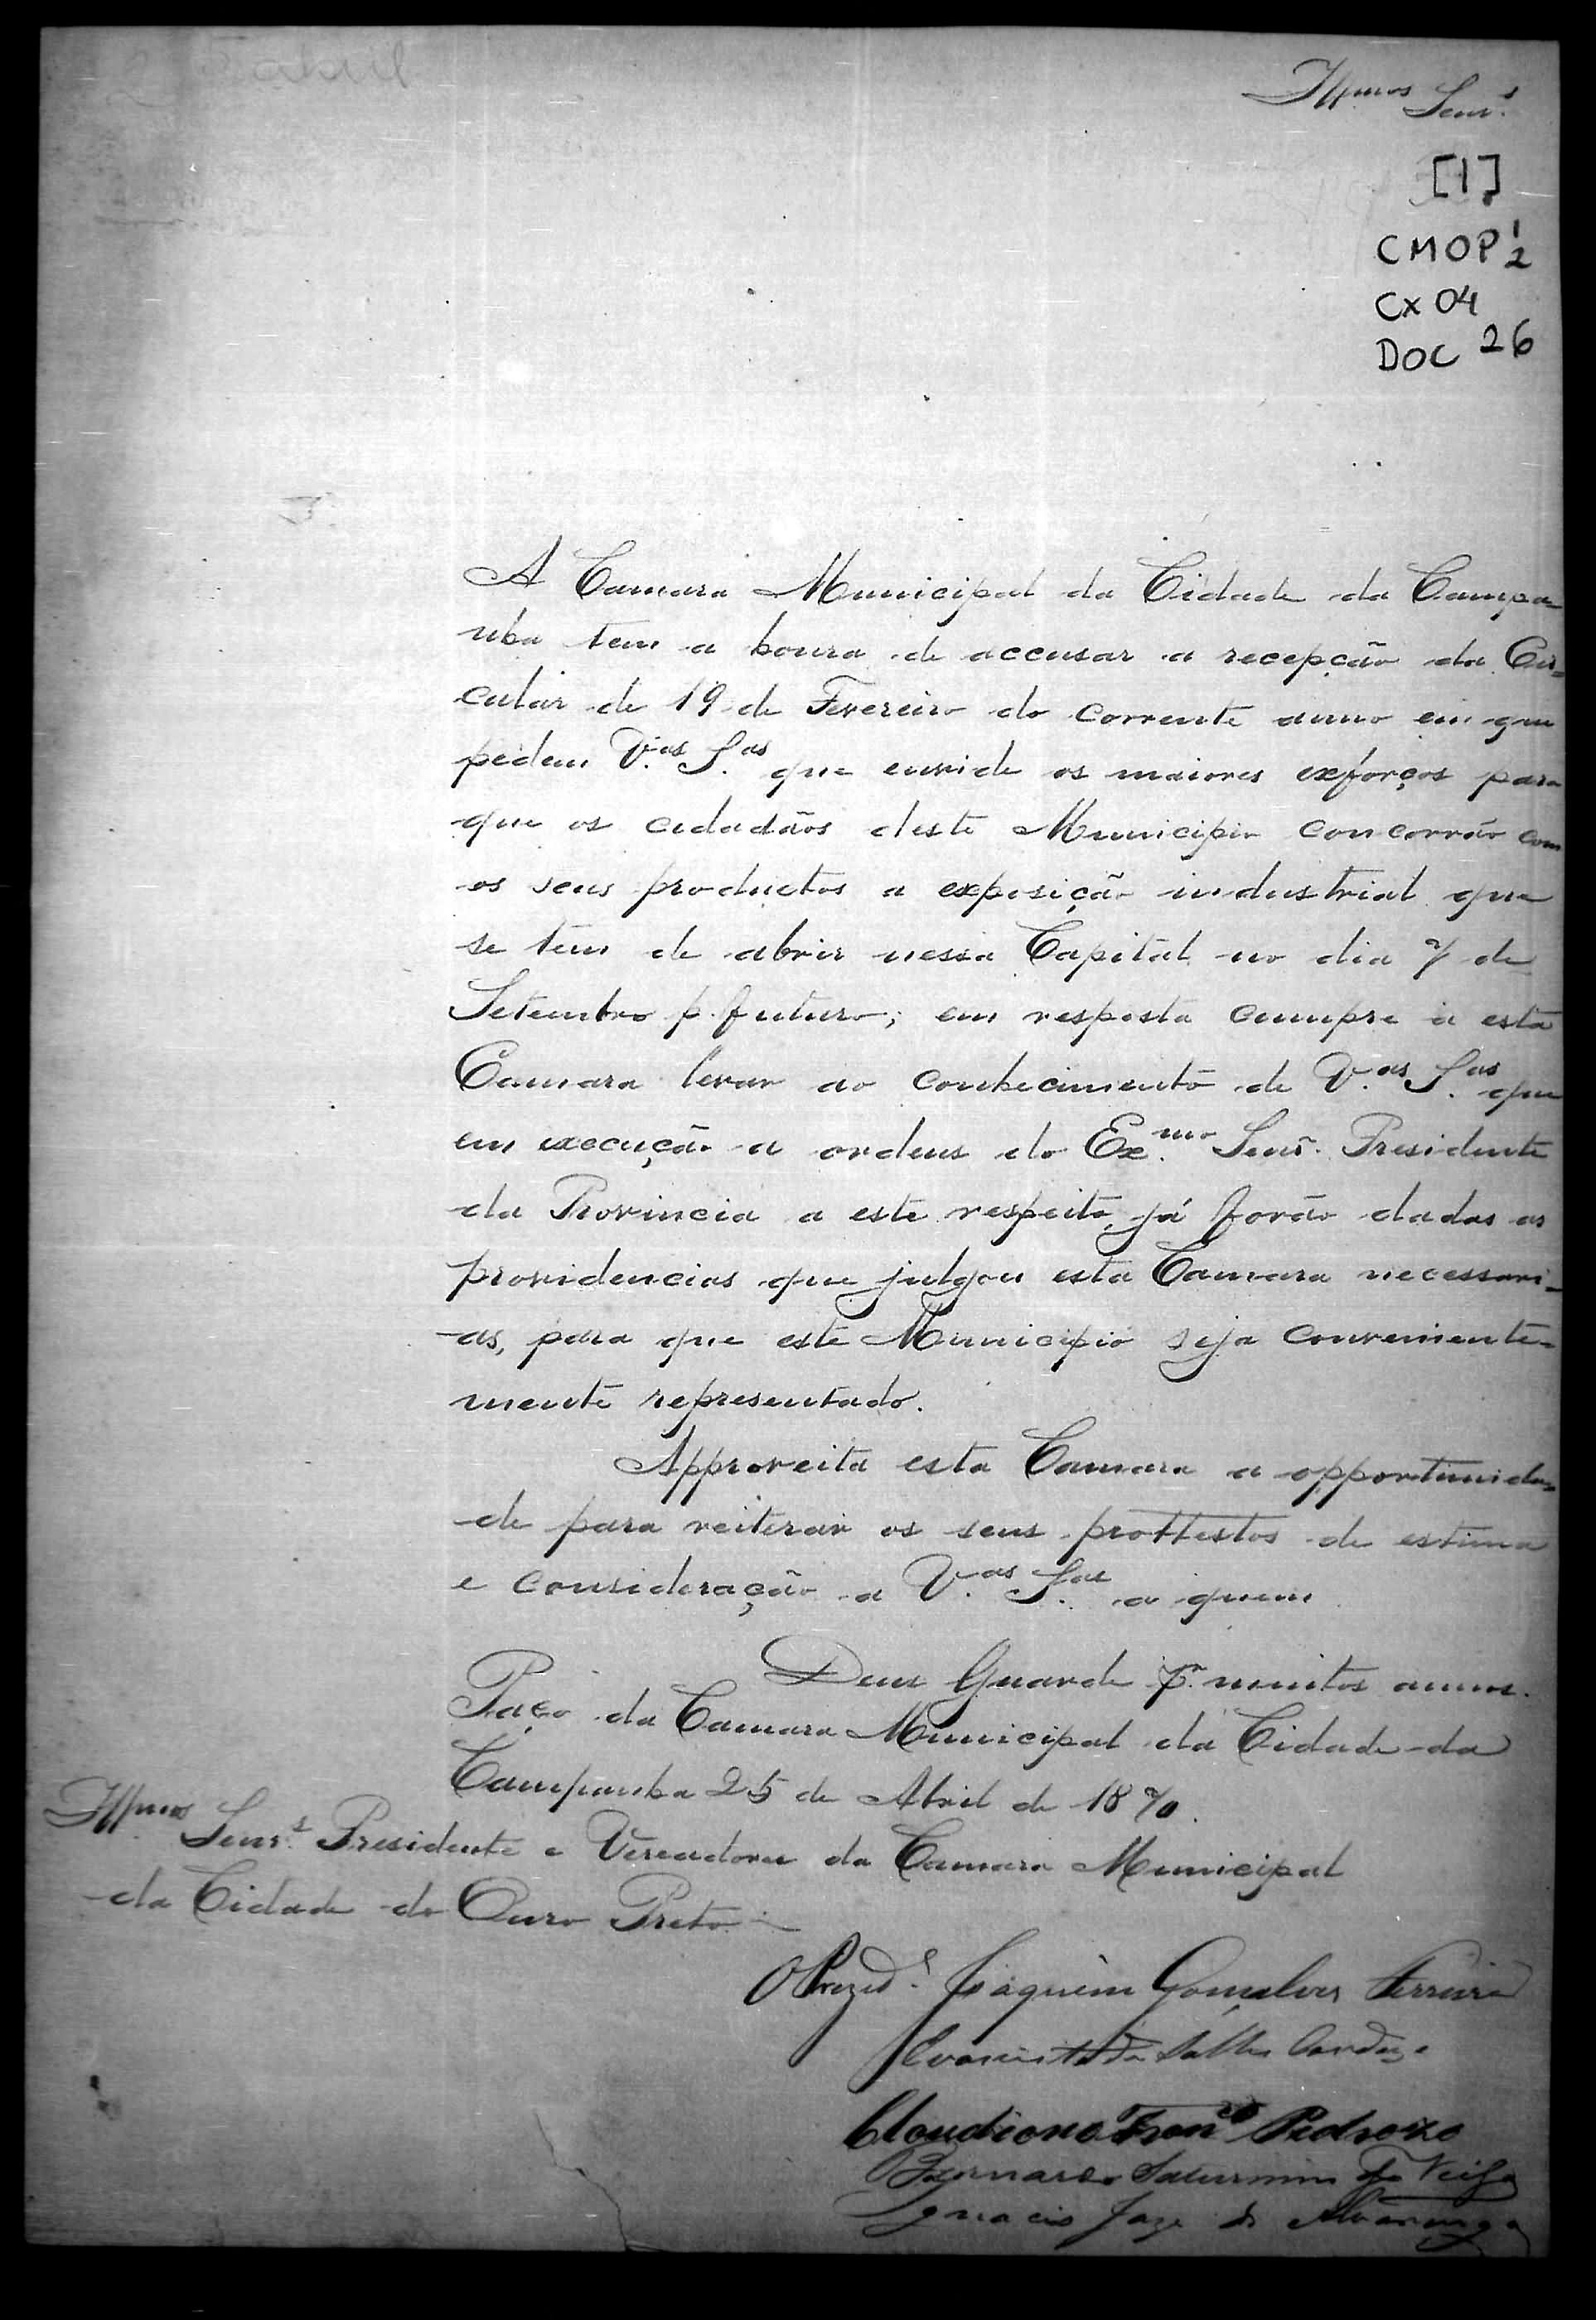 Illmos Senrs.
[1]
CMOP 1/2
CX 04
DOC 26
A Camara Municipal da Cidade da Campa-
nha tem a honra de accusar a recepção da Cir=
cular de 19 de Fevereiro do corrente anno em que
pedem V.as S.as que envide os maiores exforços para
que os cidadãos deste Municipio concorrão com
os seus productos a exposição industrial que
se tem de abrir nessa Capital no dia 7 de
Setembro p. futuro; em resposta cumpre a esta
Camara levar ao conhecimento de V.as S.as que
em execução a ordens do Ex.mo Senr. Presidente
da Provincia a este respeito, já forão dadas as
providencias que julgou esta Camara necessari-
as, para que este Municipio seja conveniente-
mente representado.
Approveita esta Camara a opportunida=
de para reiterar os seus prottestos de estima
e consideração a V.as S.as a quem
Deus Guarde p.r muitos annos.
Paço da Camara Municipal da Cidade da
Campanha 25 de Abril de 1870.
Illmos Senrs. Presidente e Vereadores da Camara Municipal
da Cidade do Ouro Preto
O Prezid.e Joaquim Gonçalves Ferreira
Evaristo de Salles Cardozo
Claudiano Fran.co Pedrozo
Bernardo Saturnino da Veiga
Ignacio Joze de Alvarenga